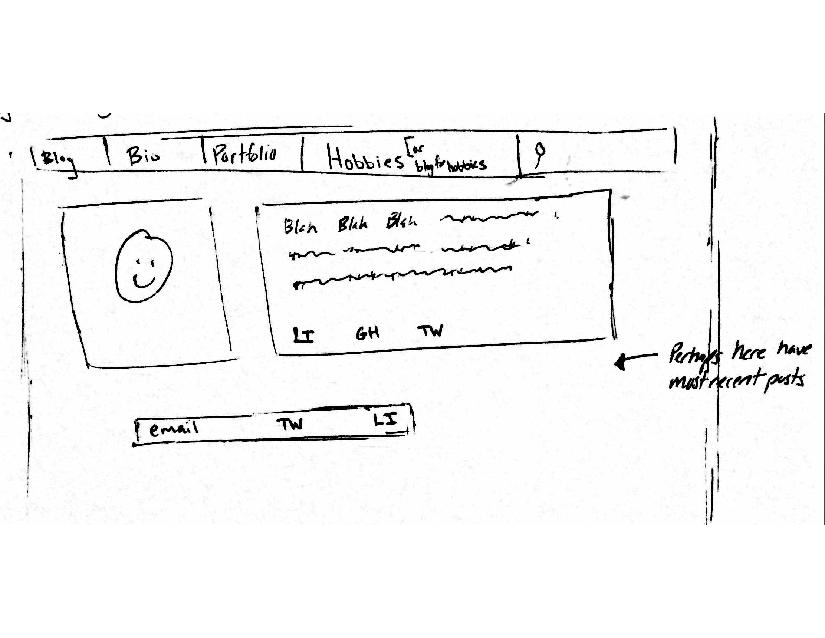 Blog
Bio
Portfolio
Hobbies [or
blog for hobbies
Blah Blah Blah
LI GH TW
Perhaps here have
most recent posts
email TW LI